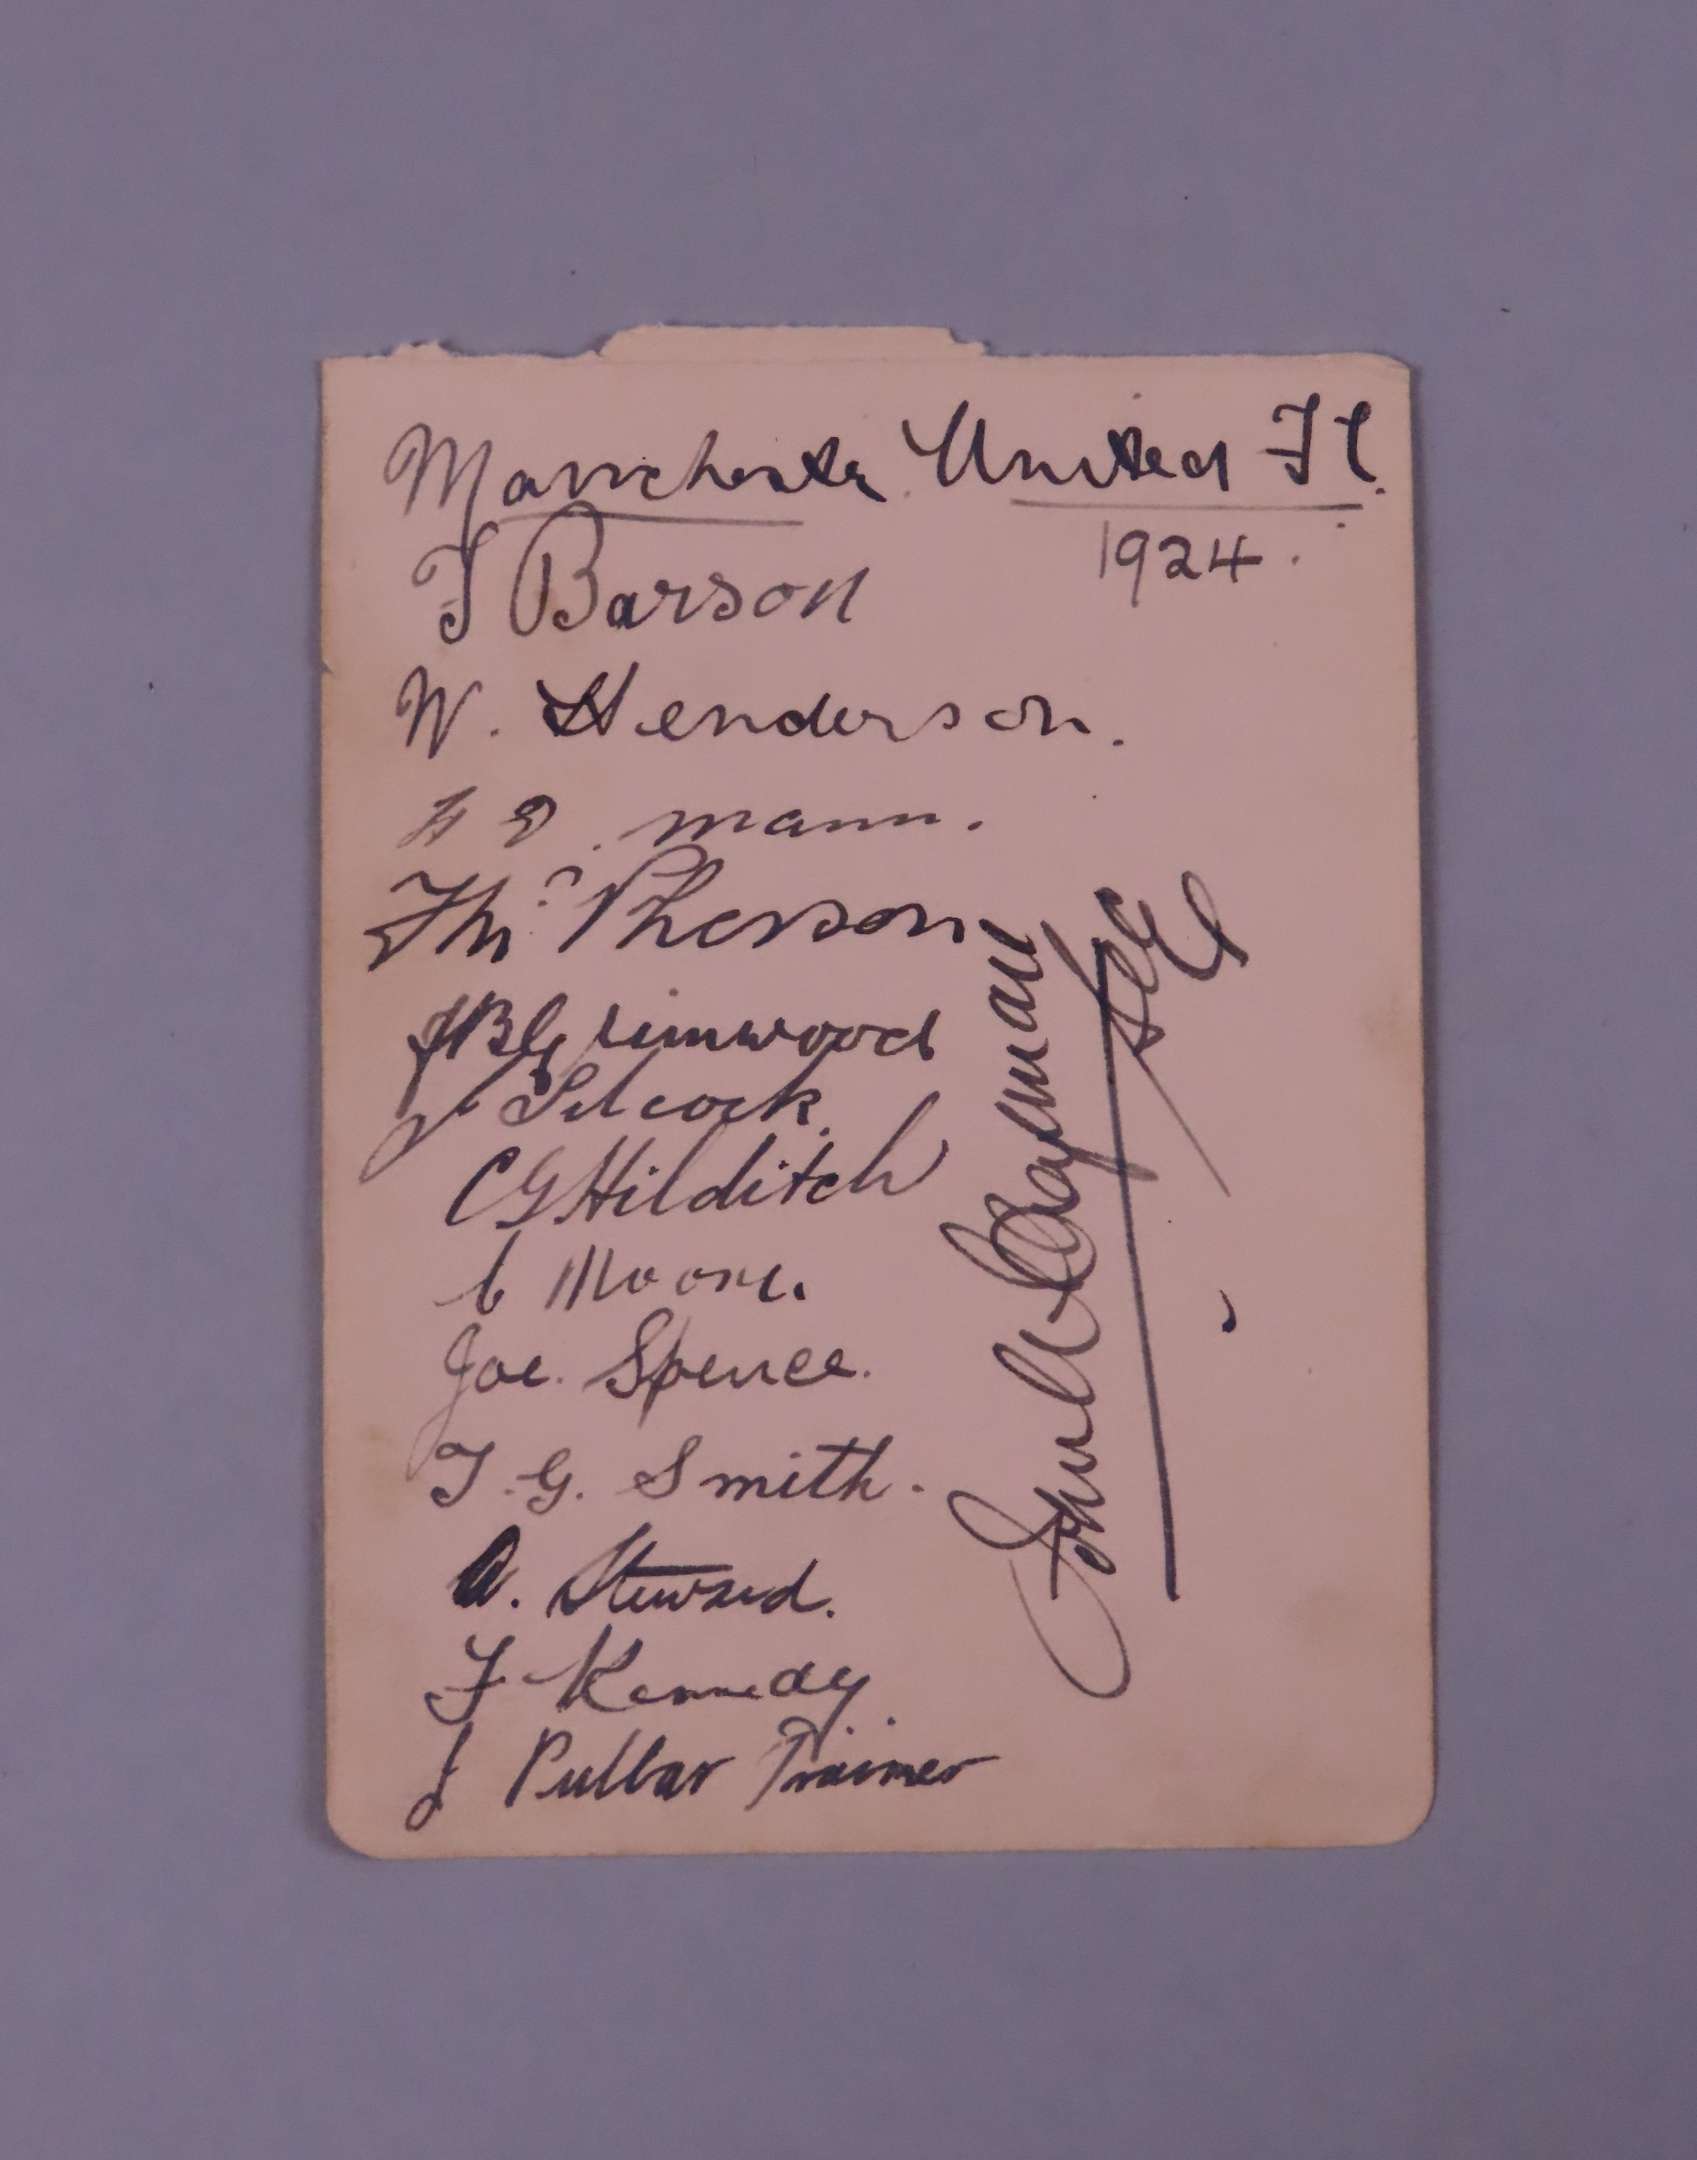 Manchester United F.C.
1924.
F Barson
W. Henderson.
H D. Mann.
F McPherson
J B Grimwood
J Silcock.
C G Hilditch
C Moore.
Joe. Spence.
T. G. Smith.
A. Steward.
F Kennedy.
J Pullar Trainer
John A Chapman
Sec